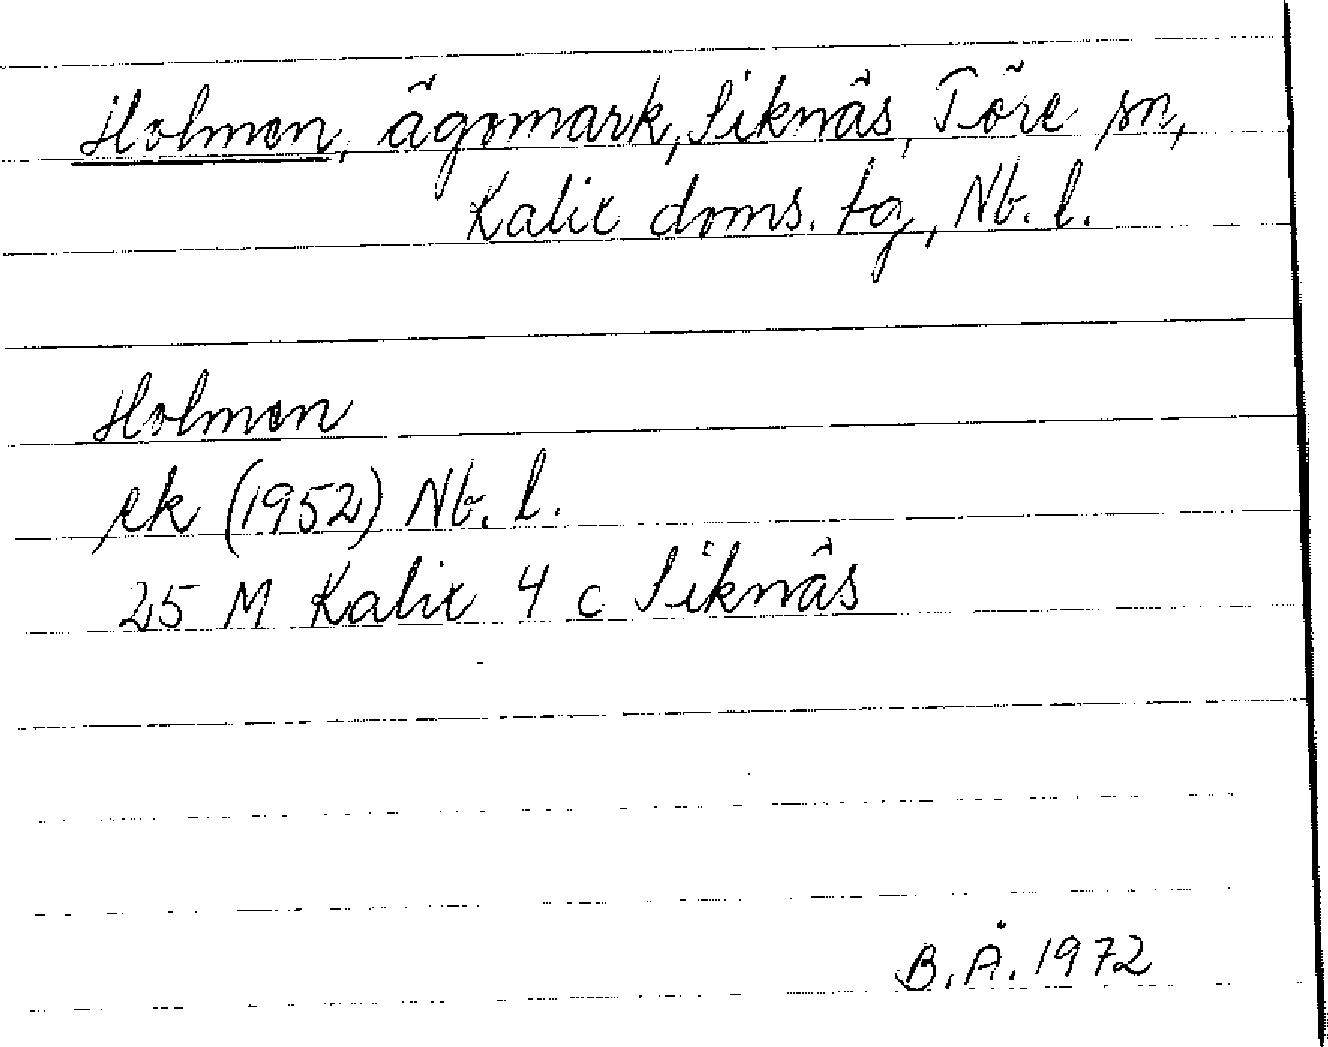 Holmen, ägomark, Siknäs, Töre sn,
Kalix doms. tg, Nb. l.
Holmen
ek (1952) Nb. l.
25 M Kalix 4 c Siknäs
B.Å. 1972